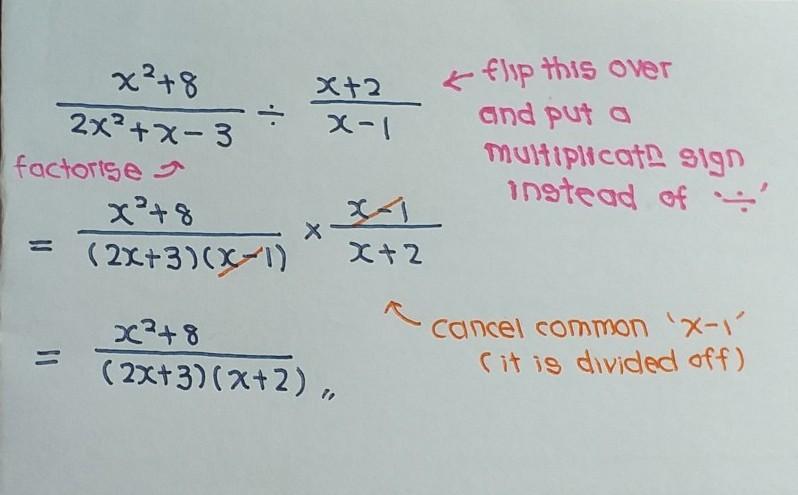 x²+8 / 2x²+x-3 ÷ x+2 / x-1
← flip this over
and put a
multiplicatn sign
instead of '÷'
factorise ↗
= x²+8 / (2x+3)(x-1) × x-1 / x+2
↖ cancel common 'x-1'
(it is divided off)
= x²+8 / (2x+3)(x+2) ,,